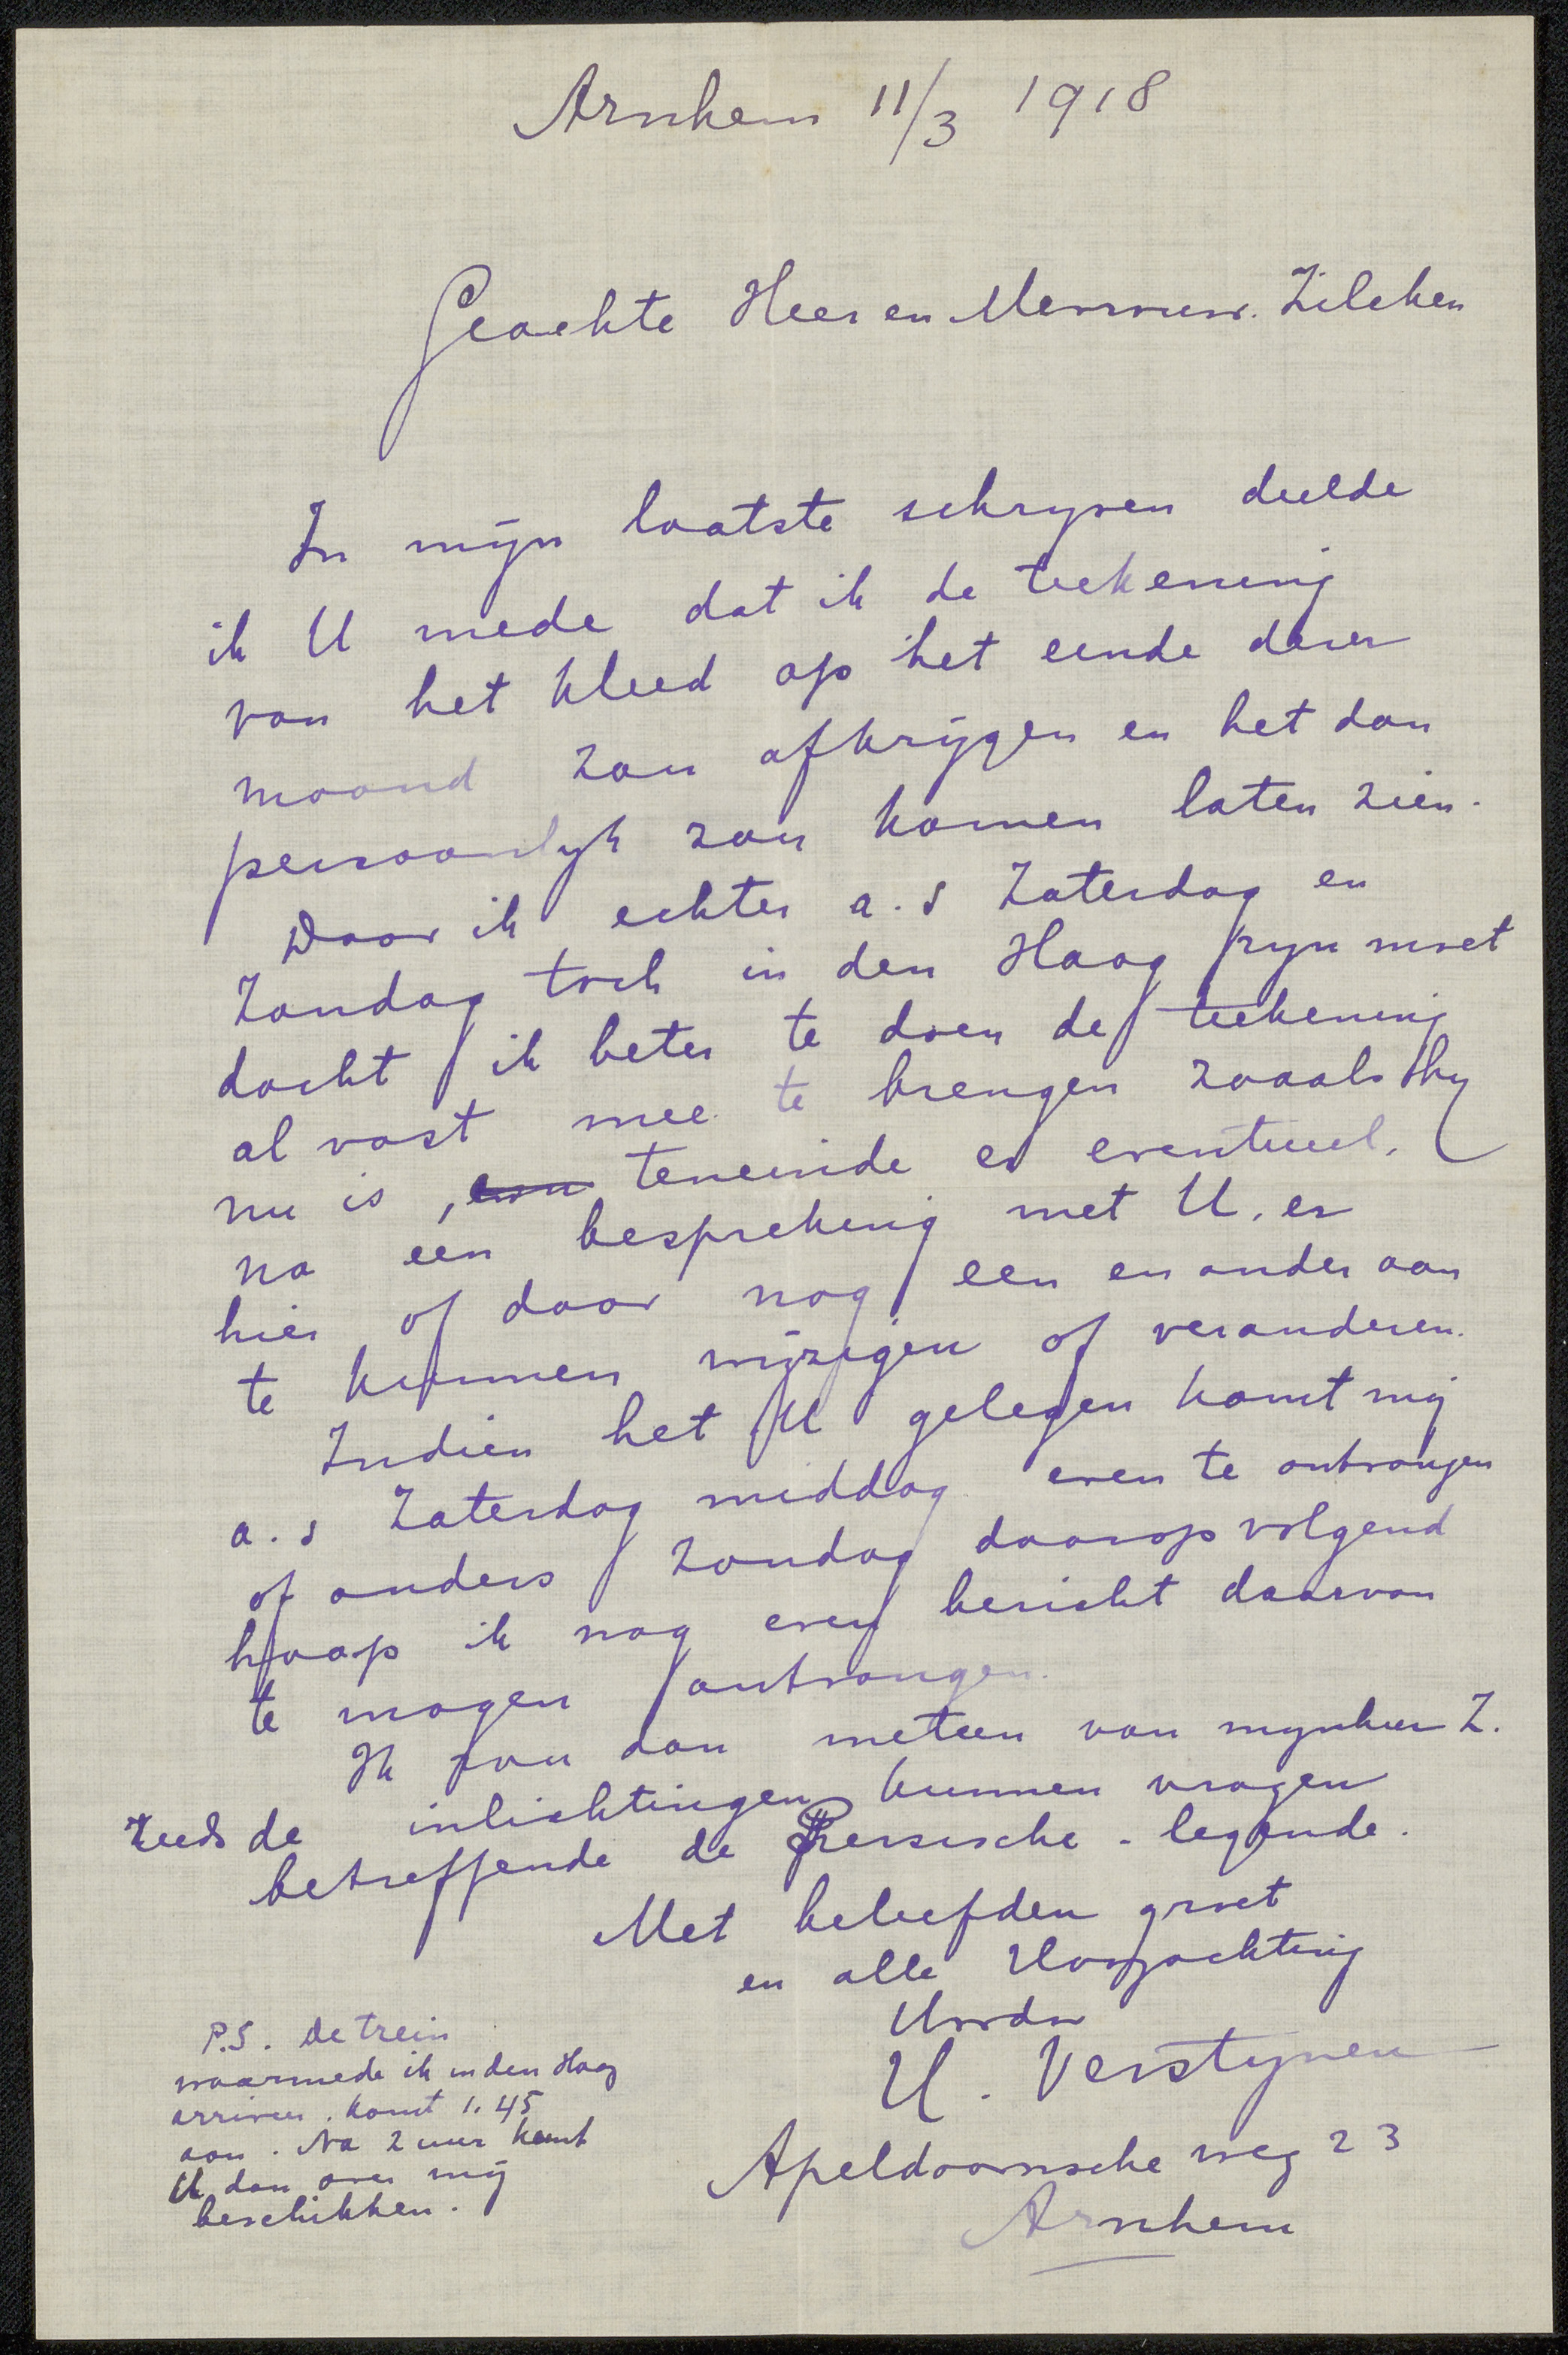 Arnhem 11/3 1918
Geachte Heer en Mevrouw. Zilcken
In mijn laatste schryven deelde
ik U mede dat ik de teekening
van het kleed op het einde dezer
maand zou afkrijgen en het dan
persoonlyk zou komen laten zien.
Daar ik echter a.s Zaterdag en
Zondag toch in den Haag zyn moet
dacht ik beter te doen de teekening
al vast mee te brengen zooals hy
nu is, teneinde er eventueel,
na een bespreking met U, er
hier of daar nog een en ander aan
te kunnen wijzigen of veranderen.
Indien het U gelegen komt mij
a.s Zaterdag middag even te ontvangen
of anders Zondag daarop volgend
hoop ik nog even bericht daarvan
te mogen ontvangen.
Ik zou dan meteen van mynheer Z.
reeds de inlichtingen kunnen vragen
betreffende de Persische - legende.
Met beleefden groet
en alle Hoogachting
U. Verstynen
Apeldoornsche weg 23
Arnhem
P.S. De trein
waarmede ik in den Haag
arriveer. komt 1.45
aan. Na 2 uur kunt
U dan over mij
beschikken.